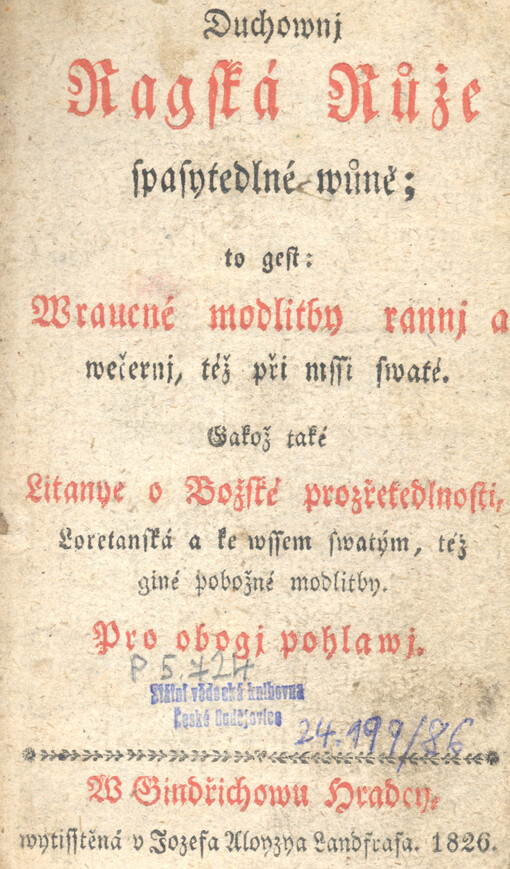 Duchownj
Ragſká Růže
ſpaſytedlné wůně;
to geſt:
Wraucné modlitby rannj a
wečernj, též při mſſi ſwaté.
Gakož také
Litanye o Božſké prozřetedlnoſti,
Loretanſká a ke wſſem ſwatým, též
giné pobožné modlitby.
Pro obogj pohlawj.
P 5.724
Státní vědecká knihovna
České Budějovice
24.199/86
W Gindřichowu Hradcy,
wytiſſtěná v Jozefa Aloyzya Landfraſa. 1826.